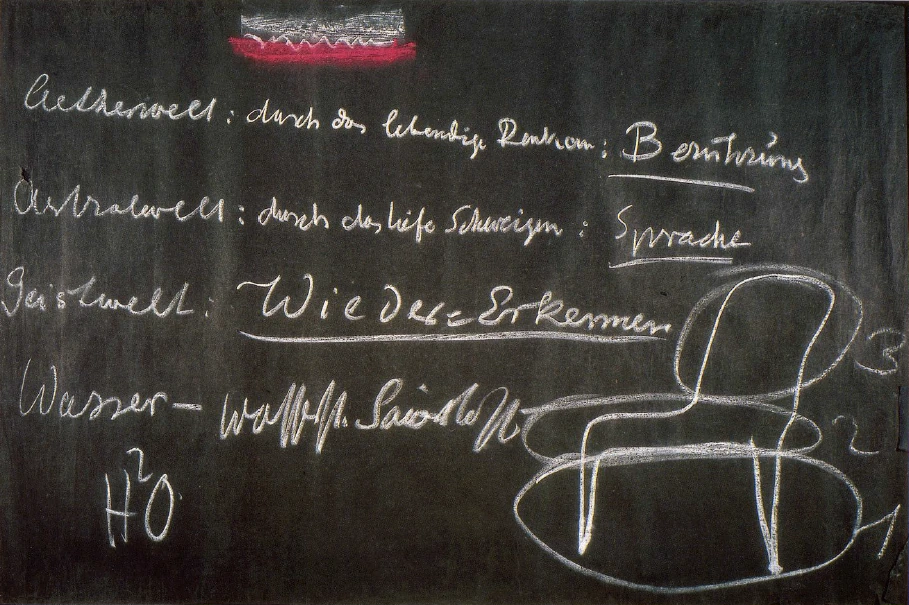 Aetherwelt: durch das lebendige Denken: Berührung
Astralwelt: durch das tiefe Schweigen: Sprache
Geistwelt: Wieder=Erkennen
3
Wasser –
2
H²O
1